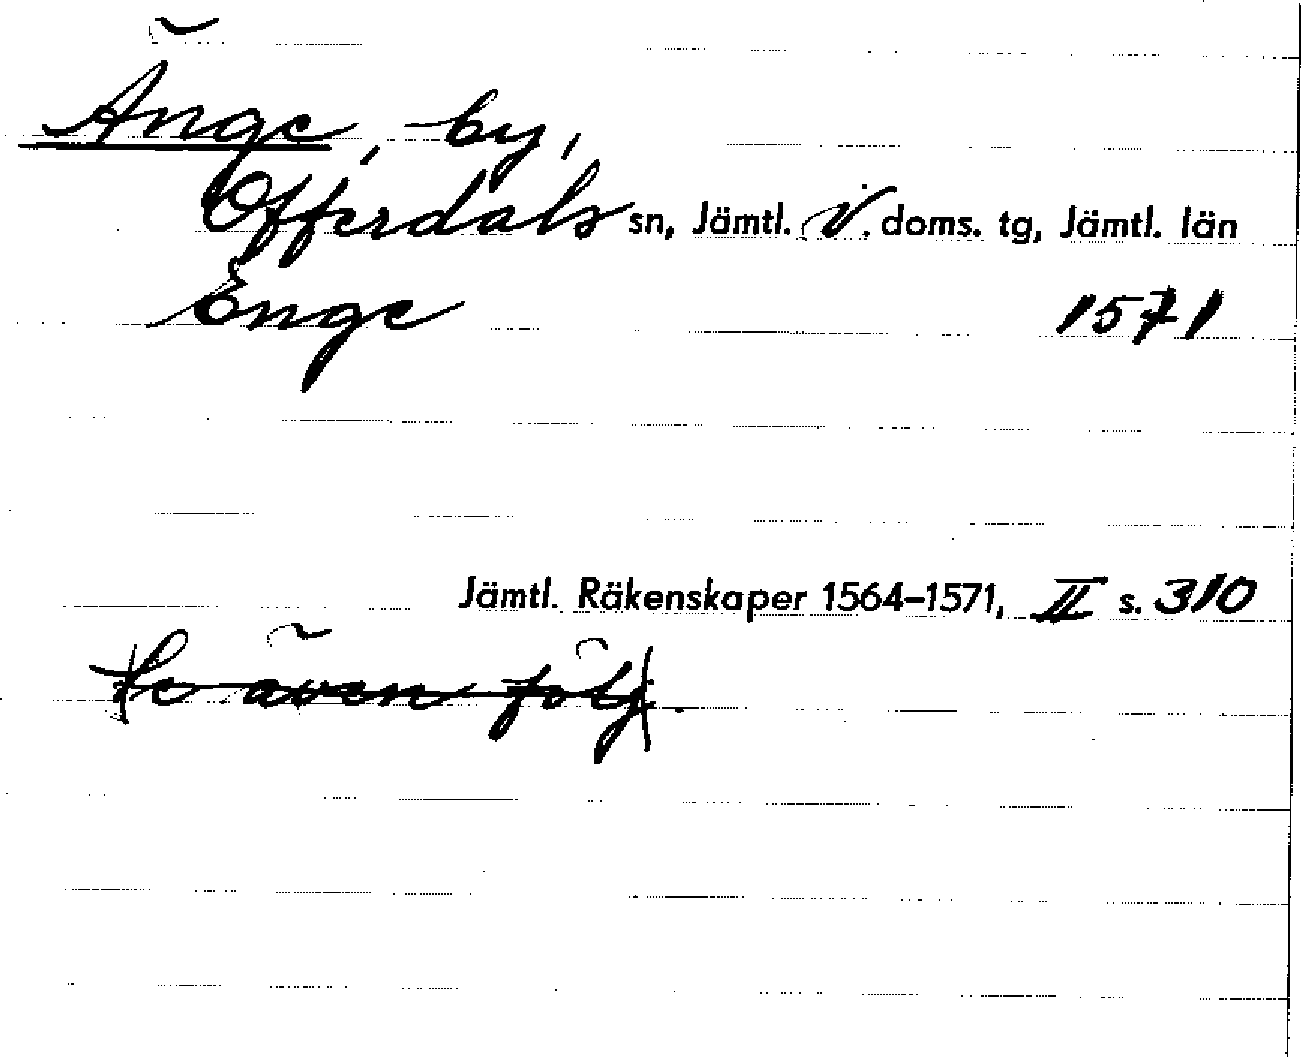 Änge, by,
Offerdals sn, Jämtl. V. doms. tg, Jämtl. län
Enge 1571
Jämtl. Räkenskaper 1564–1571, II s. 310
(Se även följ).